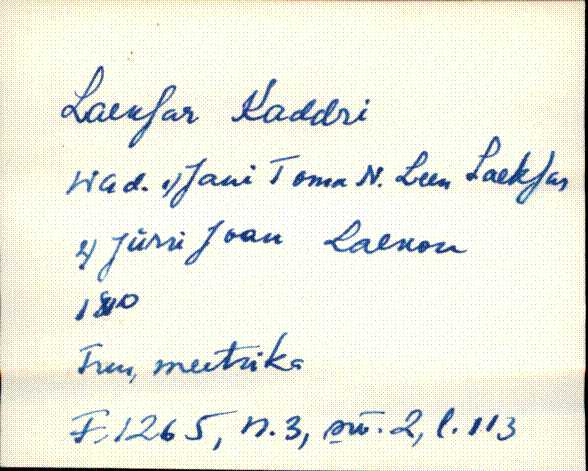 Laeksar Kaddri
Wad. 1) Jani Toma N. Leen Laeksar
2) Jürri Joan Laenon
1810
meetrika
F. 1265, n. 3, sü. 2, l. 113